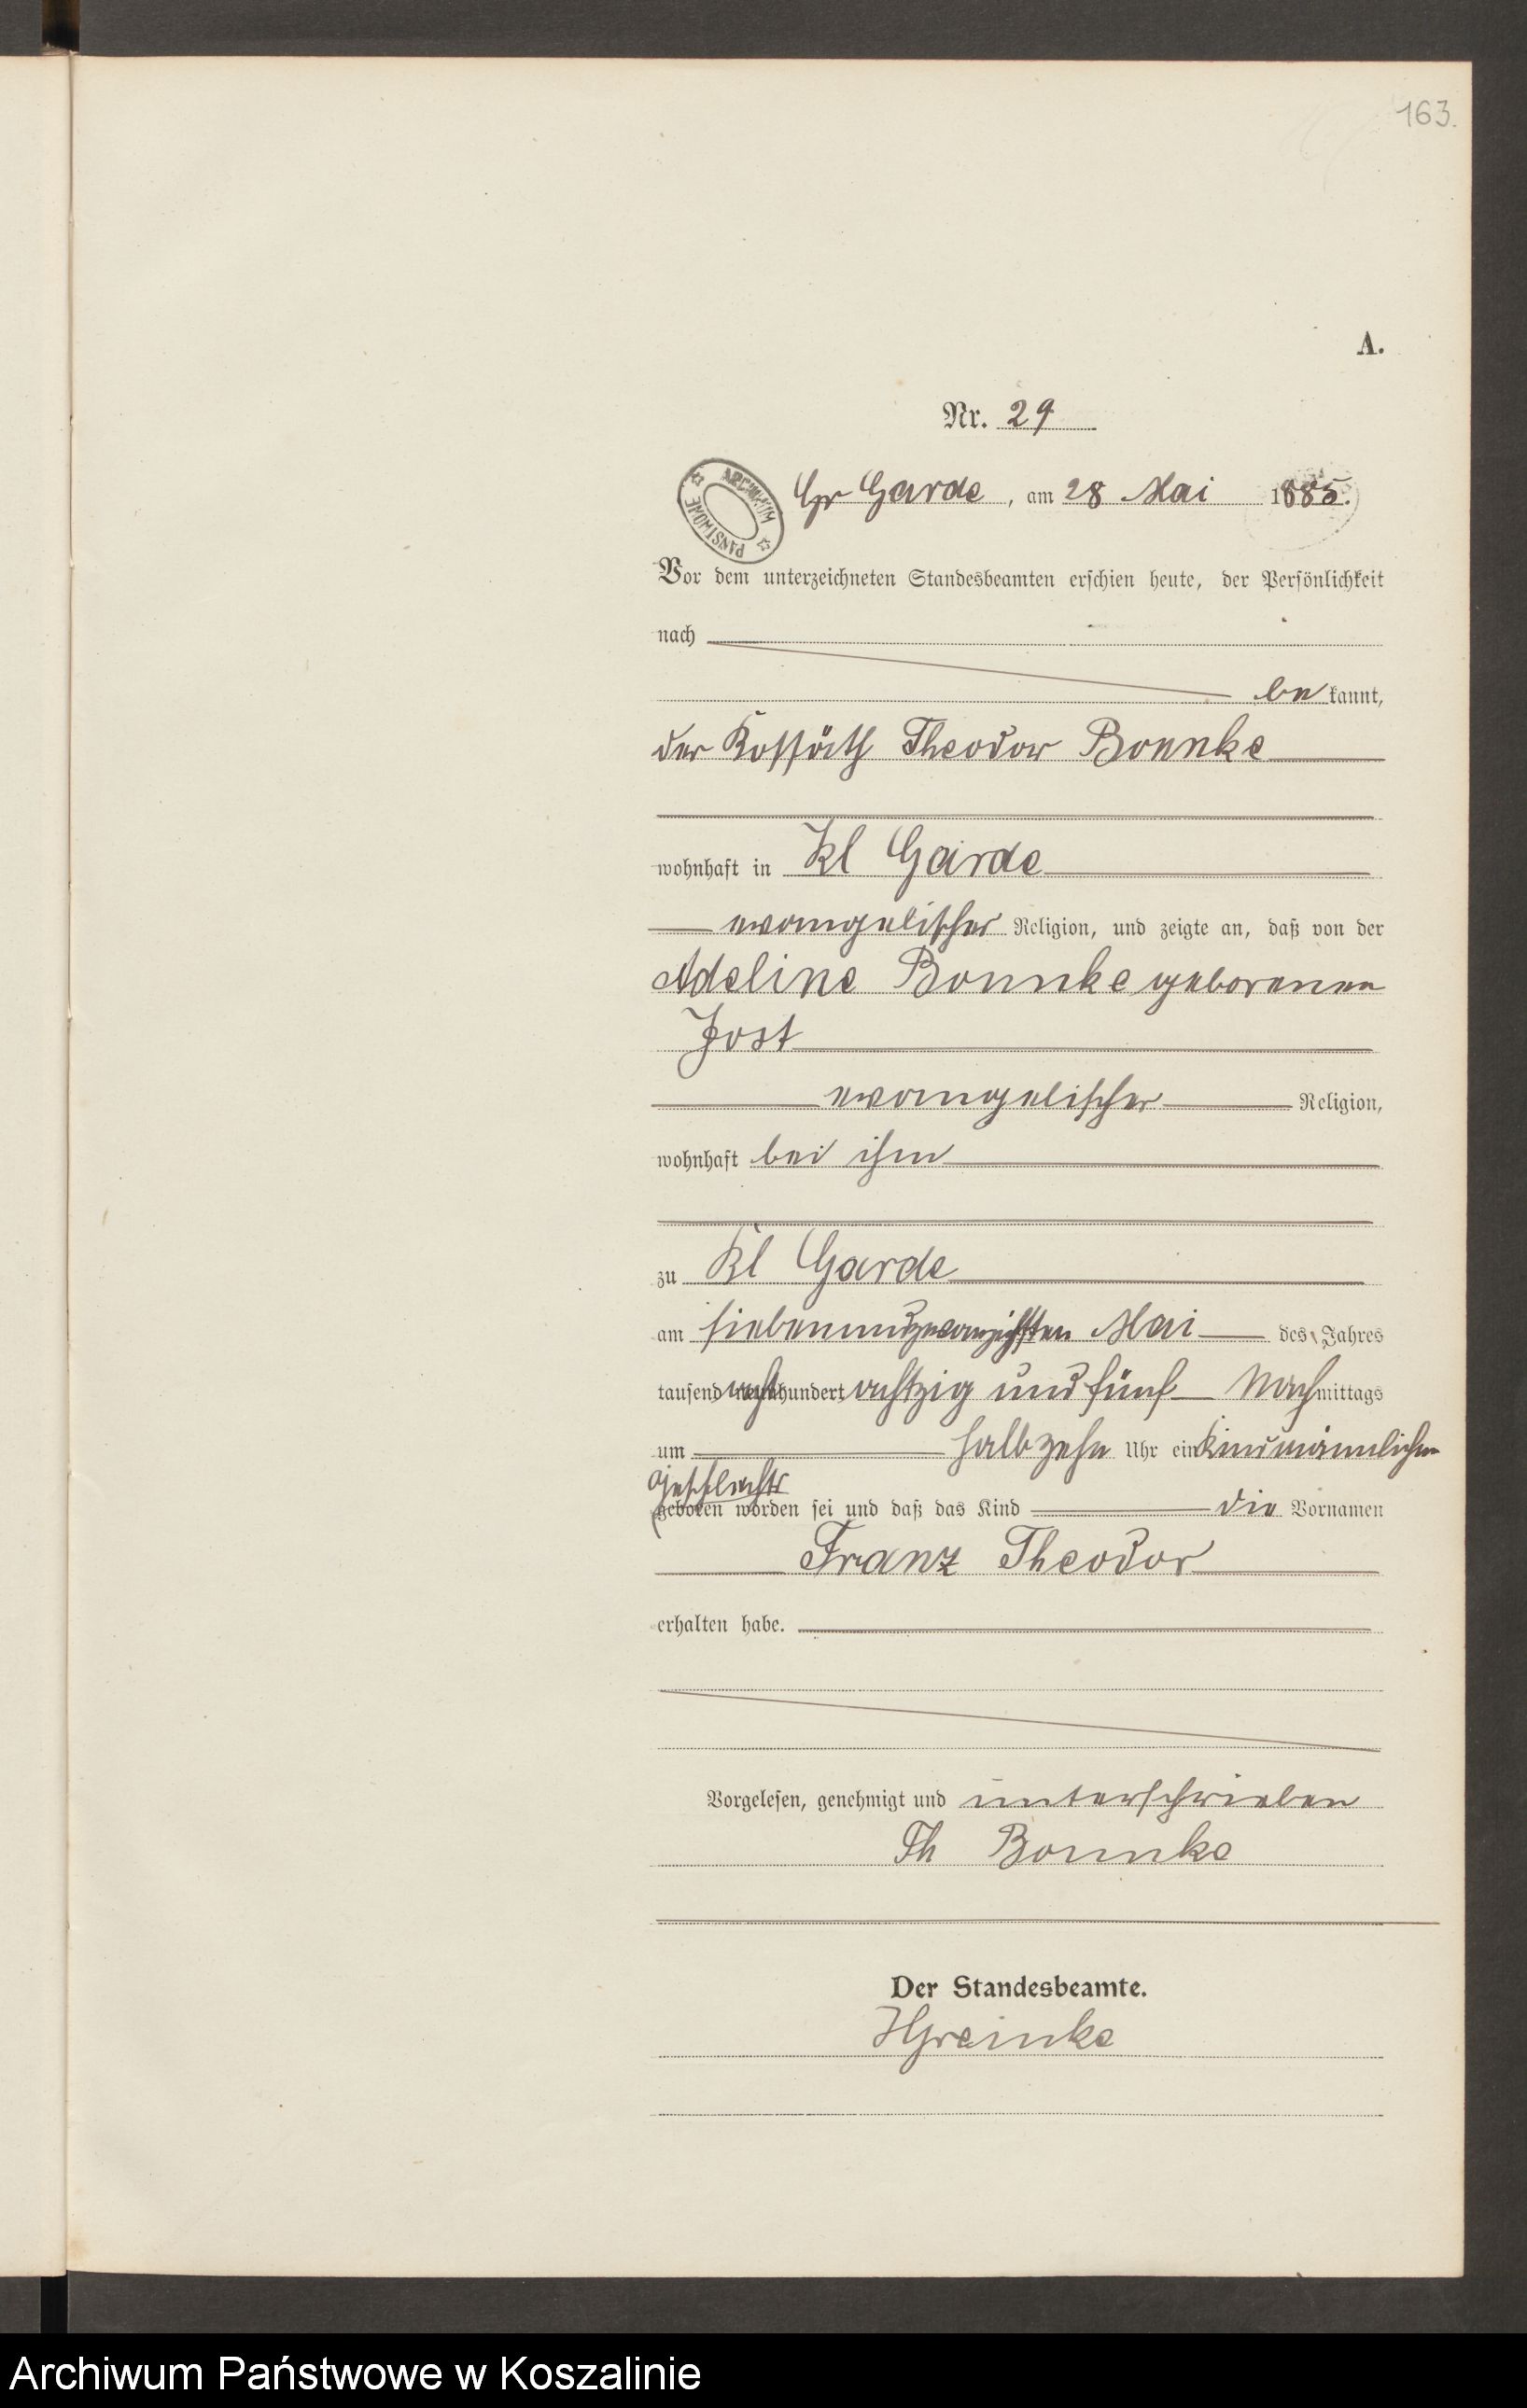 163.
A.
Nr. 29
ARCHIWUM PAŃSTWOWE
Gr Garde, am 28 Mai 1885.
Vor dem unterzeichneten Standesbeamten erschien heute, der Persönlichkeit
nach
be kannt,
der Kossäth Theodor Bonnke
wohnhaft in Kl Garde
evangelischer Religion, und zeigte an, daß von der
Adeline Bonnke geborenen
Jost
evangelischer Religion,
wohnhaft bei ihm
zu Kl Garde
am siebenundzwanzigsten Mai des Jahres
tausend acht hundert achtzig und fünf Nachmittags
um halb zehn Uhr ein Kind männlichen
Geschlechts
geboren worden sei und daß das Kind die Vornamen
Franz Theodor
erhalten habe.
Vorgelesen, genehmigt und unterschrieben
Th Bonnke
Der Standesbeamte.
HGreinke
Archiwum Państwowe w Koszalinie